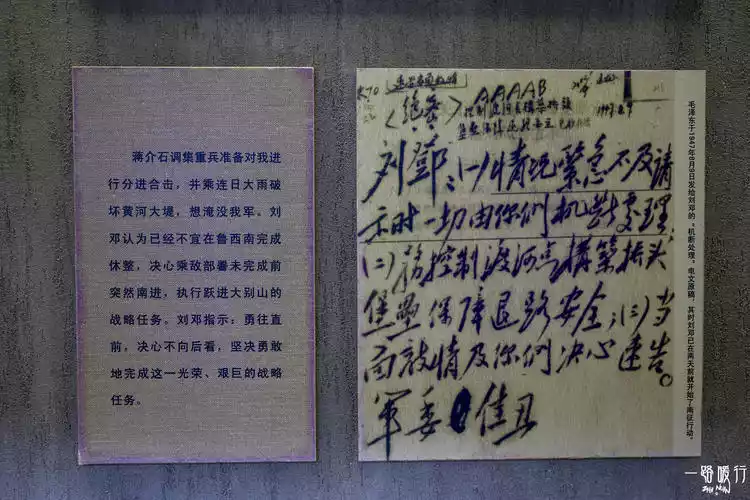 蒋介石调集重兵准备对我进
行分进合击,并乘连日大雨破
坏黄河大堤,想淹没我军。刘
邓认为已经不宜在鲁西南完成
休整,决心乘敌部署未完成前
突然南进,执行跃进大别山的
战略任务。刘邓指示:勇往直
前,决心不向后看,坚决勇敢
地完成这一光荣、艰巨的战略
任务。
AAAAB
1947.8.9
刘鄧:(一)情况緊急不及请
示时一切由你们机断处理
(二)務控制渡河点構築桥头
堡壘保障退路安全;(三)当
面敌情及你们决心速告。
軍委 佳丑
毛泽东于1947年8月9日发给刘邓的“机断处理”电文原稿,其时刘邓已在两天前就开始了南征行动。
一路暖行